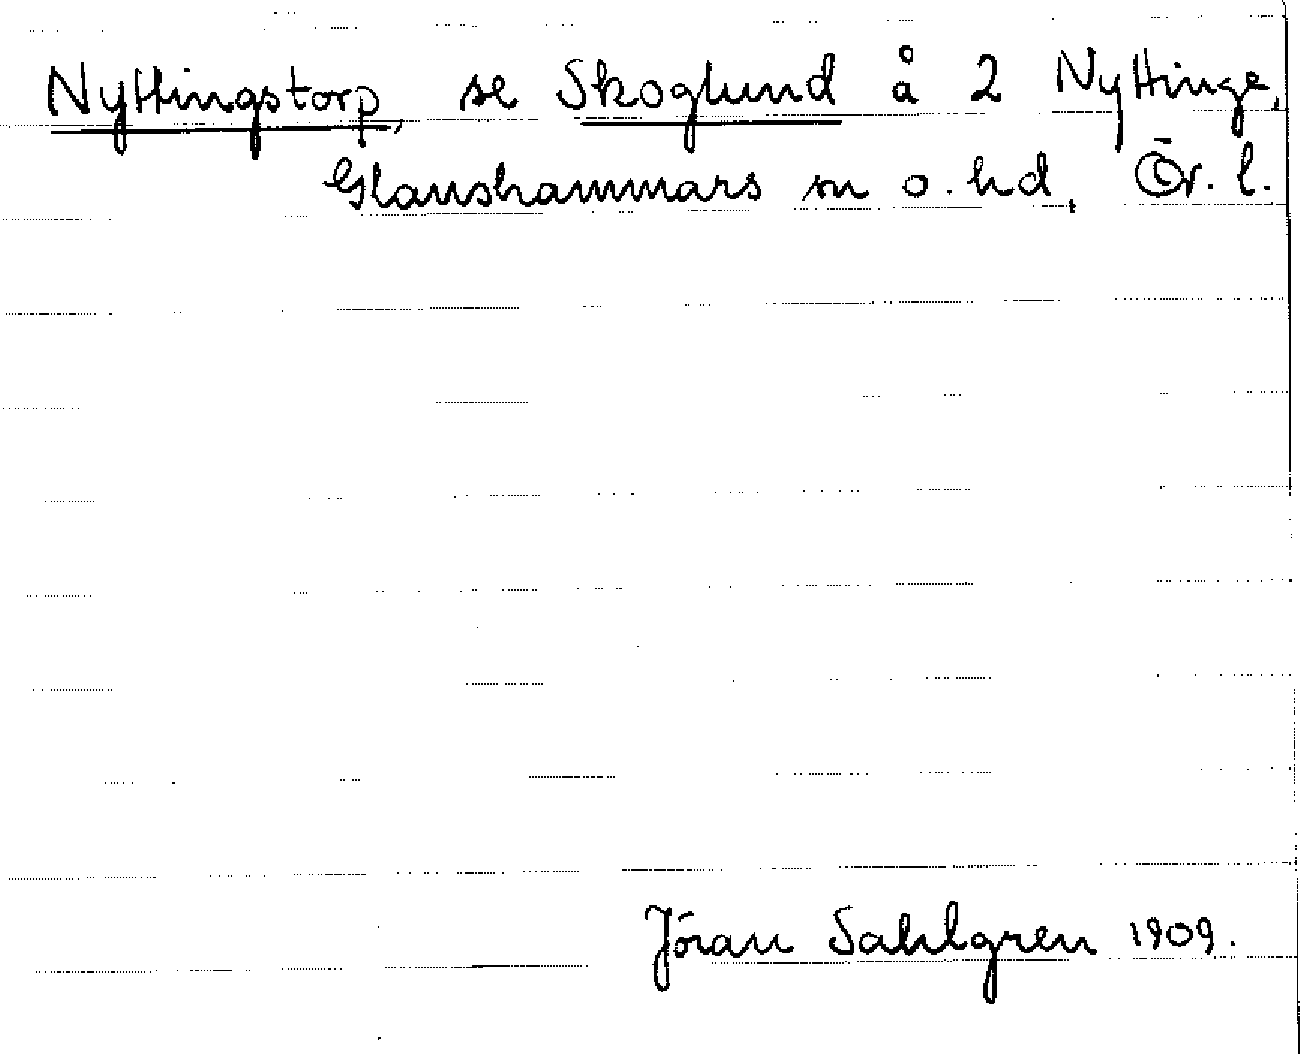 Nyttingstorp, se Skoglund å 2 Nyttinge,
Glanshammars sn o. hd, Ör. l.
Jöran Sahlgren 1909.